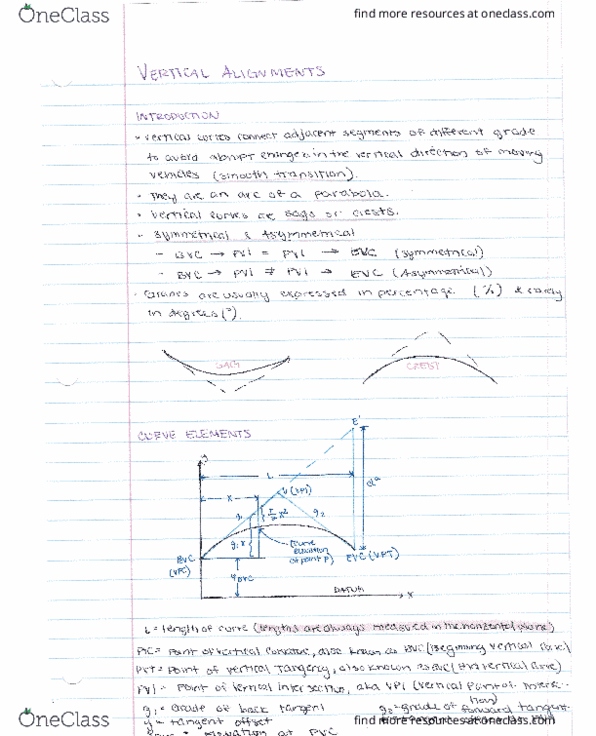 OneClass
find more resources at oneclass.com
VERTICAL ALIGNMENTS
INTRODUCTION
- Vertical curves connect adjacent segments of different grade
to avoid abrupt changes in the vertical direction of moving
vehicles (smooth transition).
- They are an arc of a parabola.
- Vertical curves are sags or crests.
- Symmetrical & Asymmetrical
- BVC → PVI = PVI → EVC (Symmetrical)
- BVC → PVI ≠ PVI → EVC (Asymmetrical)
- Grades are usually expressed in percentage (%) & rarely
in degrees (°).
SAG
CREST
CURVE ELEMENTS
E'
y
L
x
V (VPI)
g₁
g₂
g₁x
x²
curve
elevation
at point P
BVC
(VPC)
EVC (VPT)
YBVC
DATUM
x
L = length of curve (lengths are always measured in the horizontal plane)
PVC = Point of vertical curvature, also known as BVC (Beginning Vertical Curve)
PVT = Point of vertical tangency, also known as EVC (End vertical curve)
PVI = Point of vertical intersection, aka VPI (Vertical Point of Intersec-
tion)
g₁ = Grade of back tangent
g₂ = grade of forward tangent
y = tangent offset
elevation at PVC
OneClass
find more resources at oneclass.com